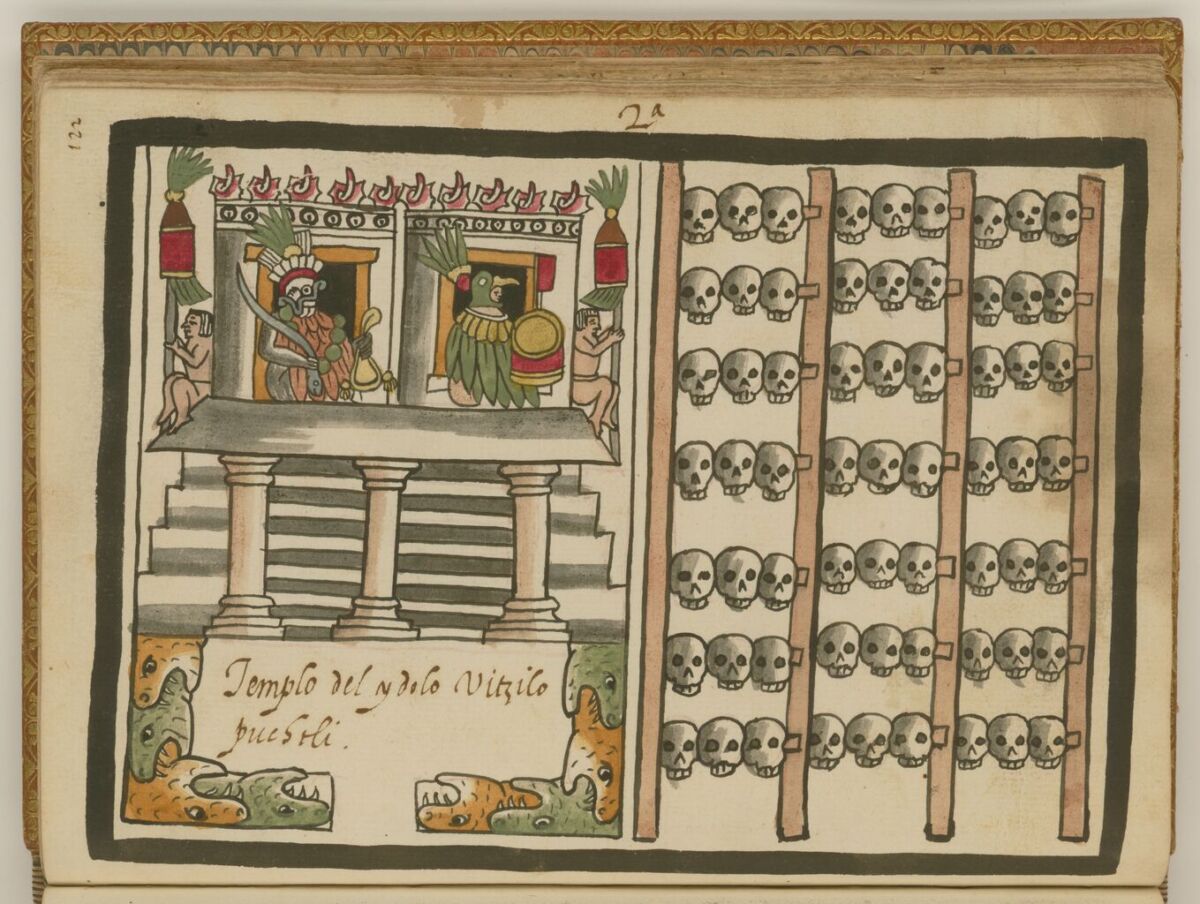 2ª
122
Templo del ydolo Vitzilo
puchtli.